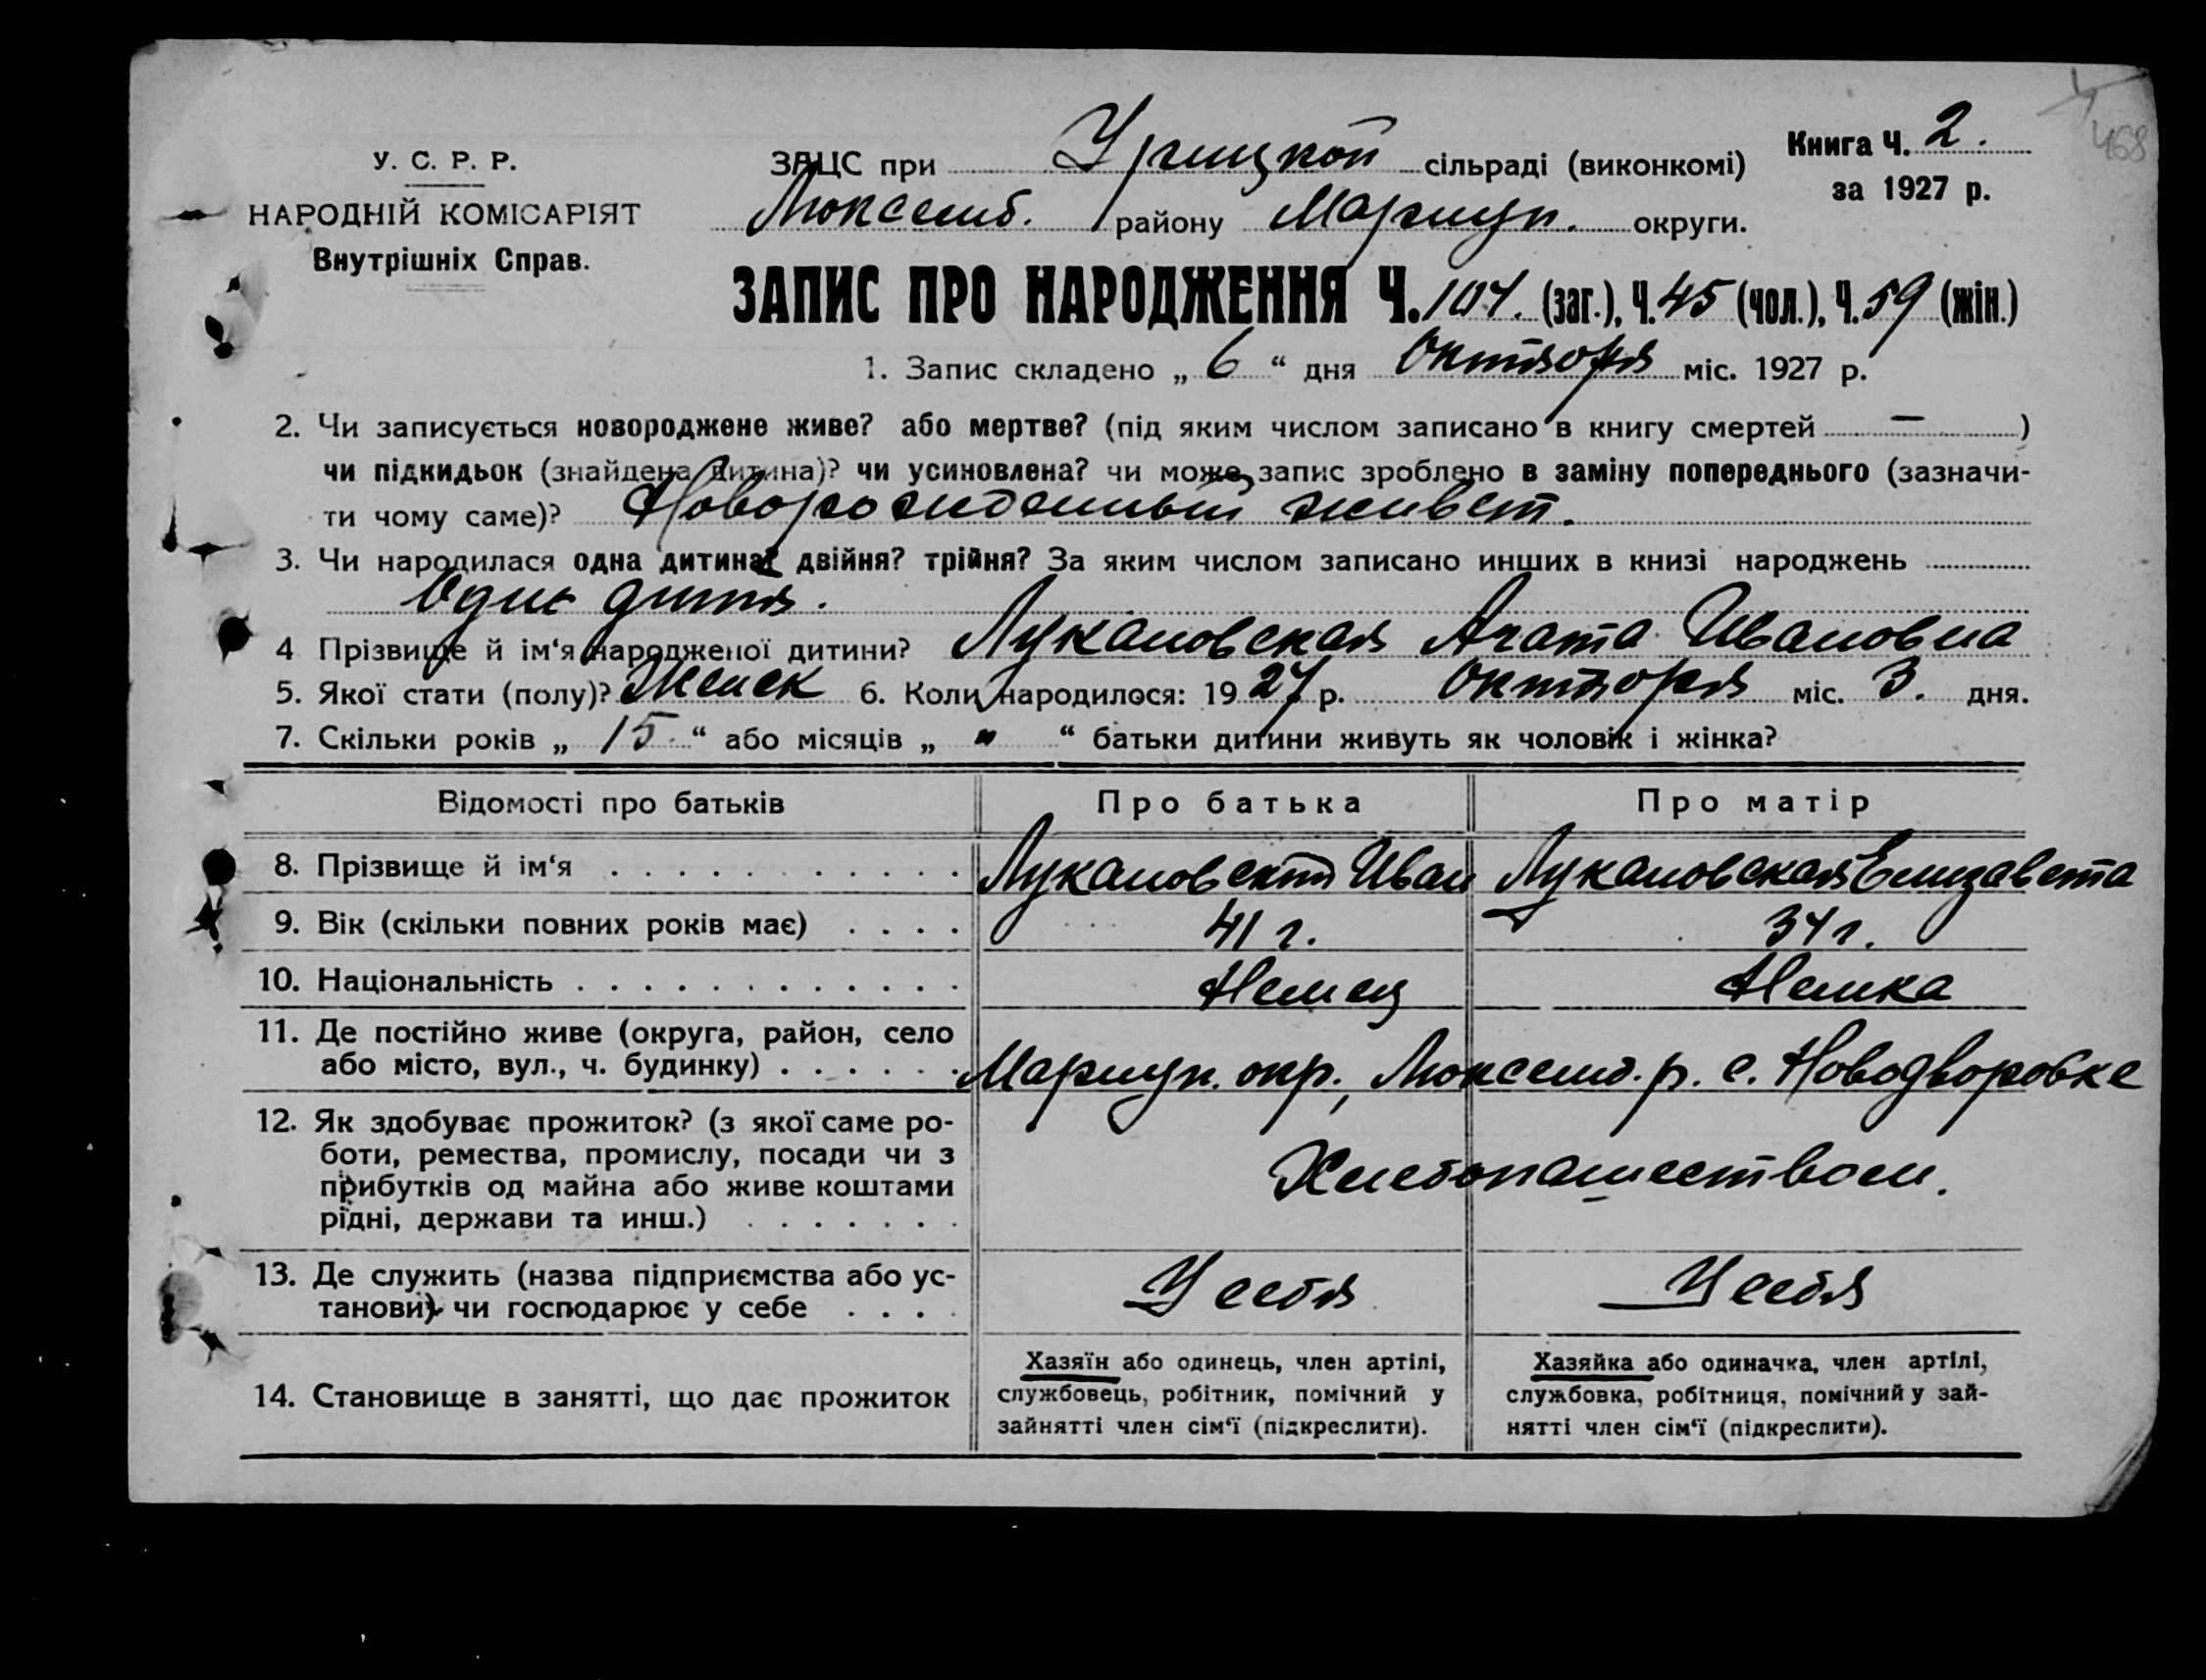 У. С. Р. Р.
НАРОДНІЙ КОМІСАРІЯТ
Внутрішніх Справ.
ЗАЦС при Урицкой сільраді (виконкомі)
Люксемб. району Мариуп. округи.
Книга Ч. 2.
за 1927 р.
468
ЗАПИС ПРО НАРОДЖЕННЯ Ч. 104. (заг.), Ч. 45 (чол.), Ч. 59 (жін.)
1. Запис складено „ 6 “ дня Октября міс. 1927 р.
2. Чи записується новороджене живе? або мертве? (під яким числом записано в книгу смертей — )
чи підкидьок (знайдена дитина)? чи усиновлена? чи може, запис зроблено в заміну попереднього (зазначи-
ти чому саме)? Новорожденный живет.
3. Чи народилася одна дитина? двійня? трійня? За яким числом записано инших в книзі народжень
Одно дитя.
4 Прізвище й ім‘я народженої дитини? Лукановская Агата Ивановна
5. Якої стати (полу)? Женск 6. Коли народилося: 1927 р. Октября міс. 3. дня.
7. Скільки років „ 15 “ або місяців „ " “ батьки дитини живуть як чоловік і жінка?
Відомості про батьків Про батька Про матір
8. Прізвище й ім‘я Лукановский Иван Лукановская Елизавета
9. Вік (скільки повних років має) 41 г. 34 г.
10. Національність Немец Немка
11. Де постійно живе (округа, район, село
або місто, вул., ч. будинку) Мариуп. окр., Люксемб. р. с. Новодворовке
12. Як здобуває прожиток? (з якої саме ро-
боти, ремества, промислу, посади чи з
прибутків од майна або живе коштами
рідні, держави та инш.) Хлебопашеством.
13. Де служить (назва підприємства або ус-
танови) чи господарює у себе У себя У себя
14. Становище в занятті, що дає прожиток
Хазяїн або одинець, член артілі,
службовець, робітник, помічний у
зайнятті член сім‘ї (підкреслити).
Хазяйка або одиначка, член артілі,
службовка, робітниця, помічний у зай-
нятті член сім‘ї (підкреслити).